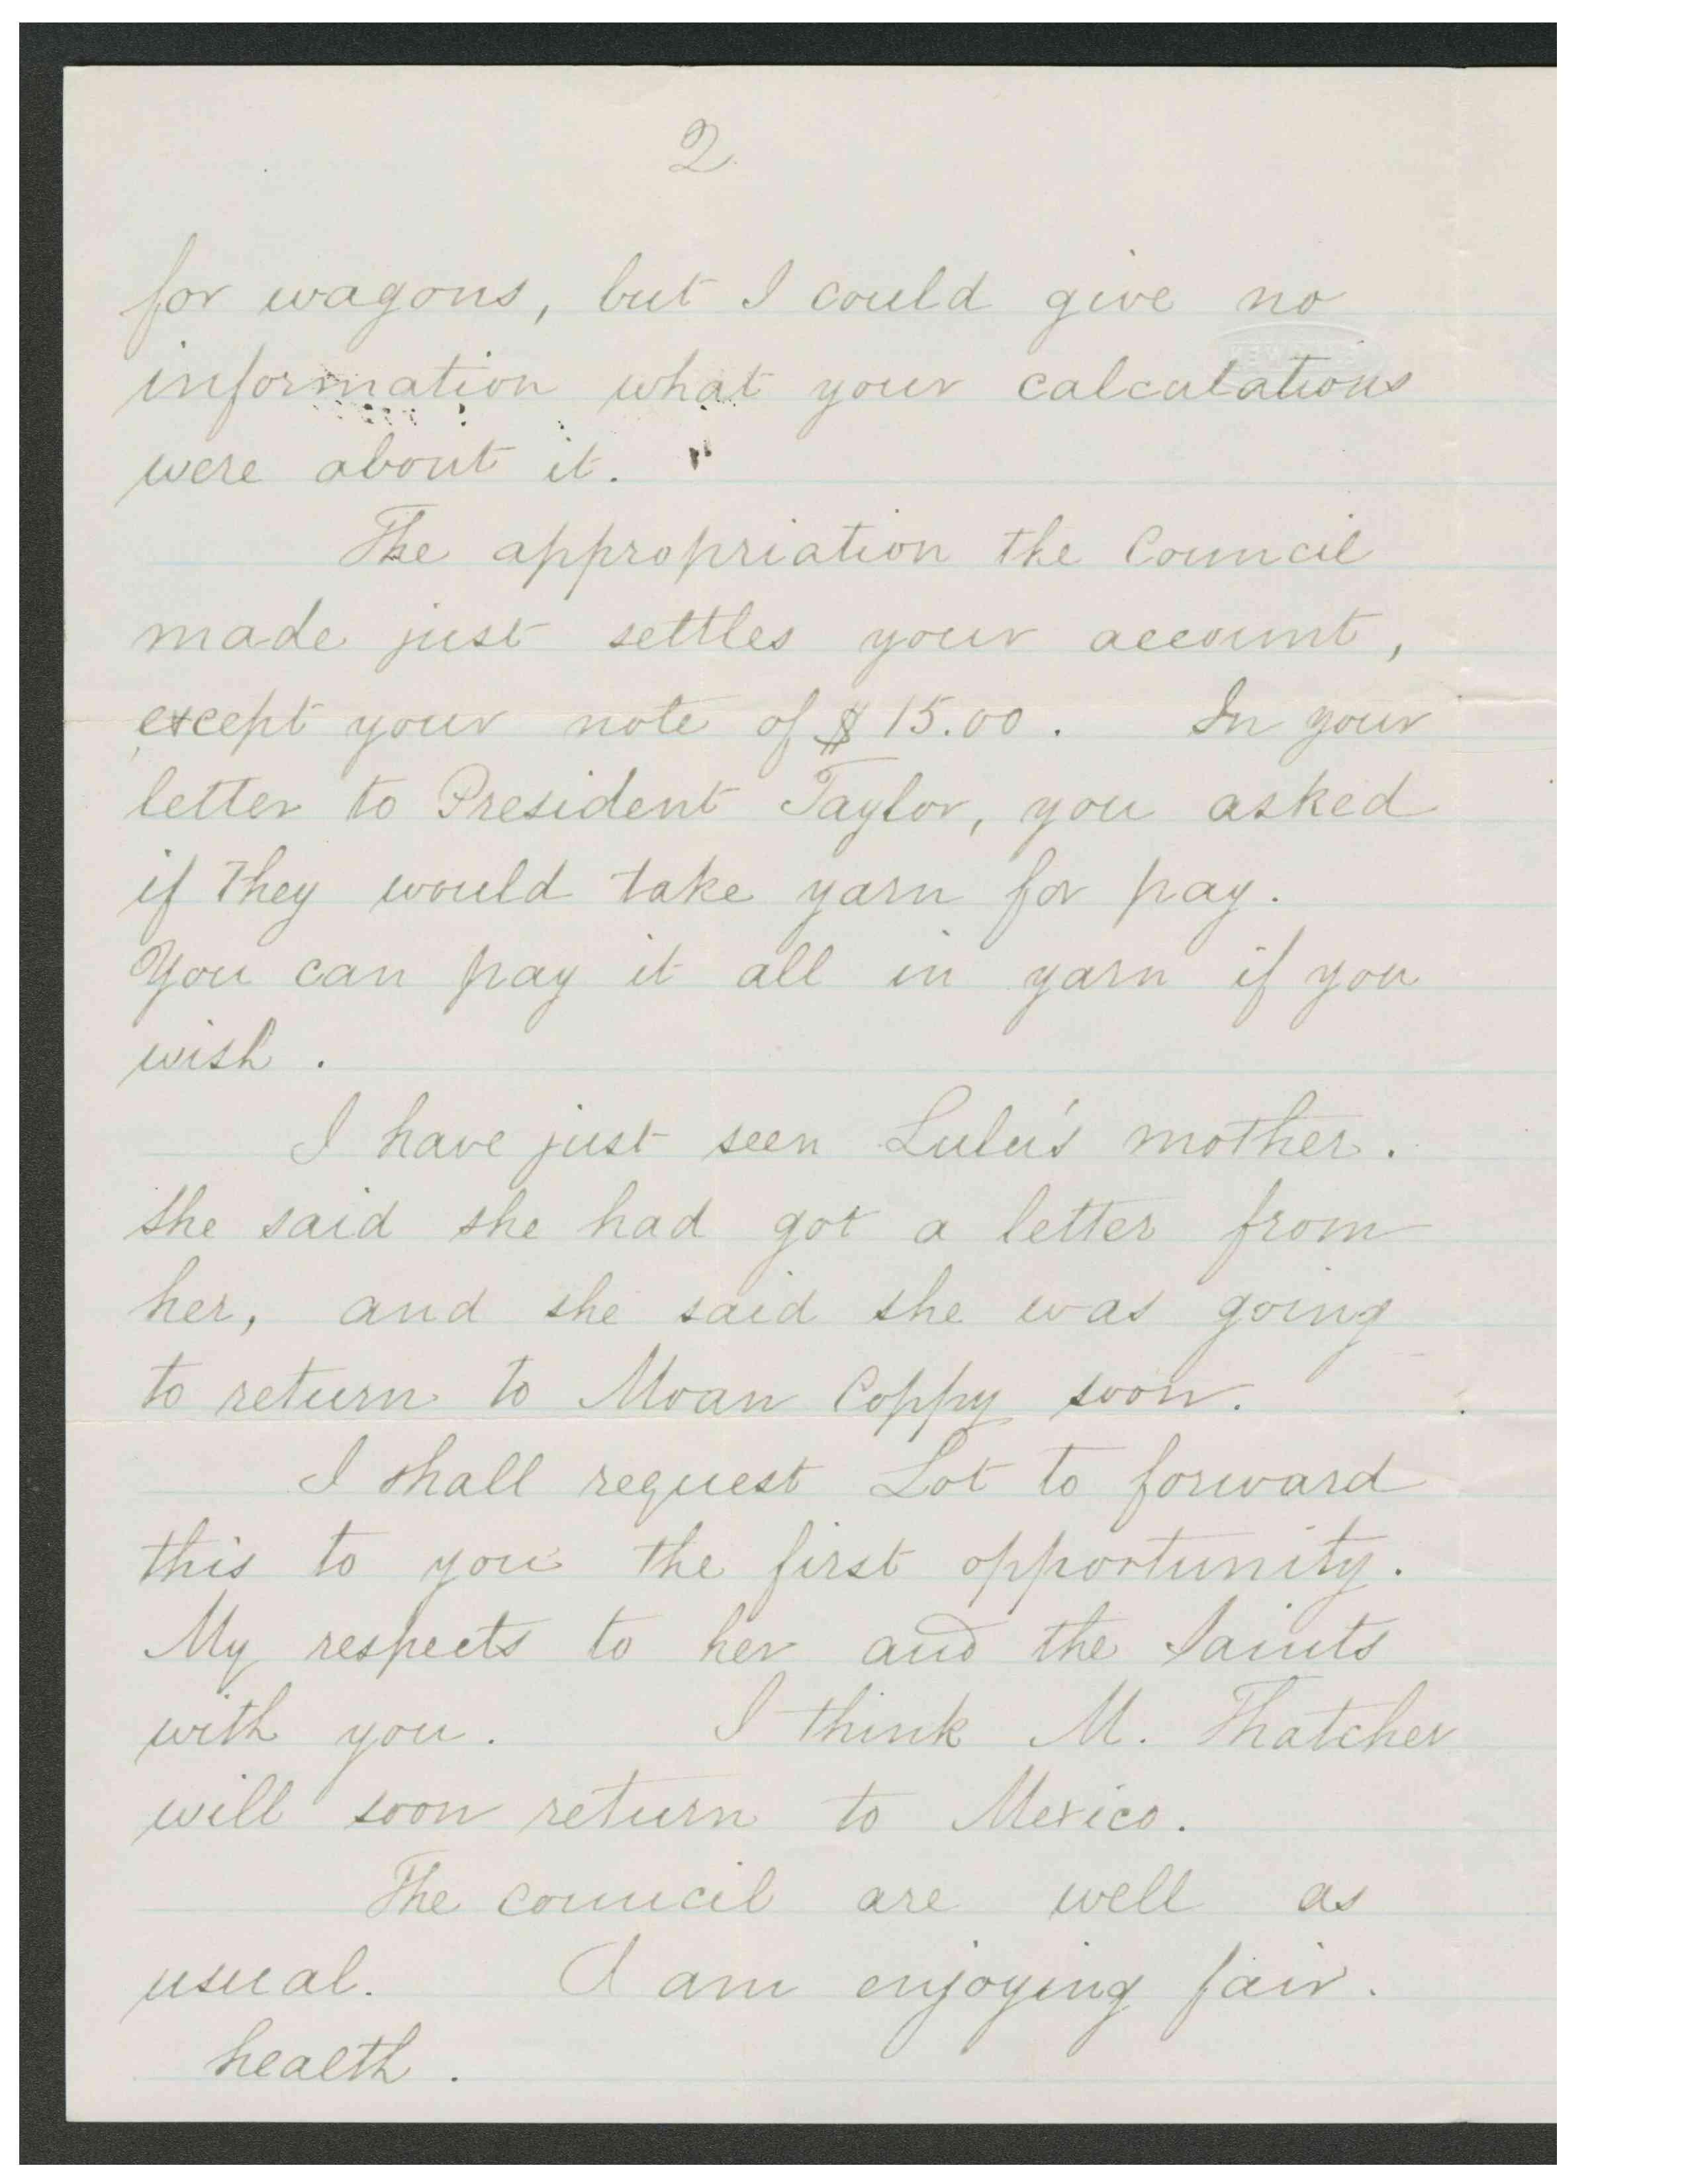 2
for wagons, but I could give no
information what your calculations
were about it.
The appropriation the Council
made just settles your account,
except your note of $15.00. In your
letter to President Taylor, you asked
if they would take yarn for pay.
You can pay it all in yarn if you
wish.
I have just seen Lulu's mother.
She said she had got a letter from
her, and she said she was going
to return to Moan Coppy soon.
I shall request Lot to forward
this to you the first opportunity.
My respects to her and the Saints
with you. I think M. Thatcher
will soon return to Mexico.
The council are well as
usual. I am enjoying fair.
health.